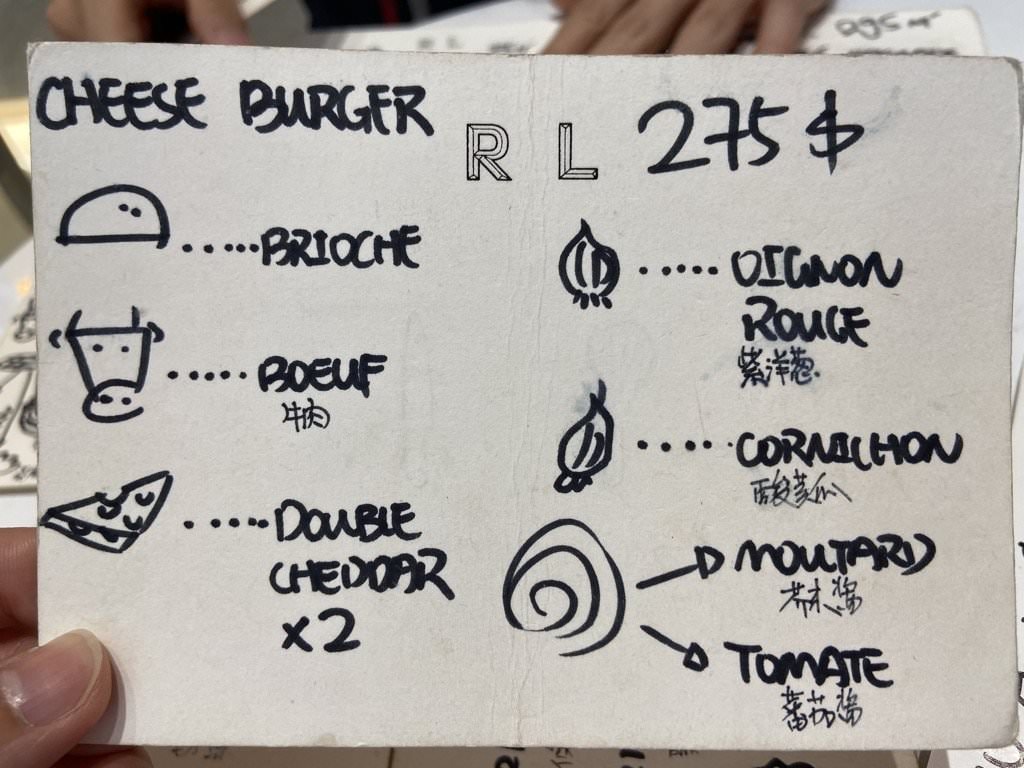 CHEESE BURGER
R L
275 $
BRIOCHE
BOEUF
牛肉
DOUBLE
CHEDDAR
x2
OIGNON
ROUGE
紫洋葱
CORNICHON
酸黄瓜
MOUTARD
芥末酱
TOMATE
蕃茄酱
295